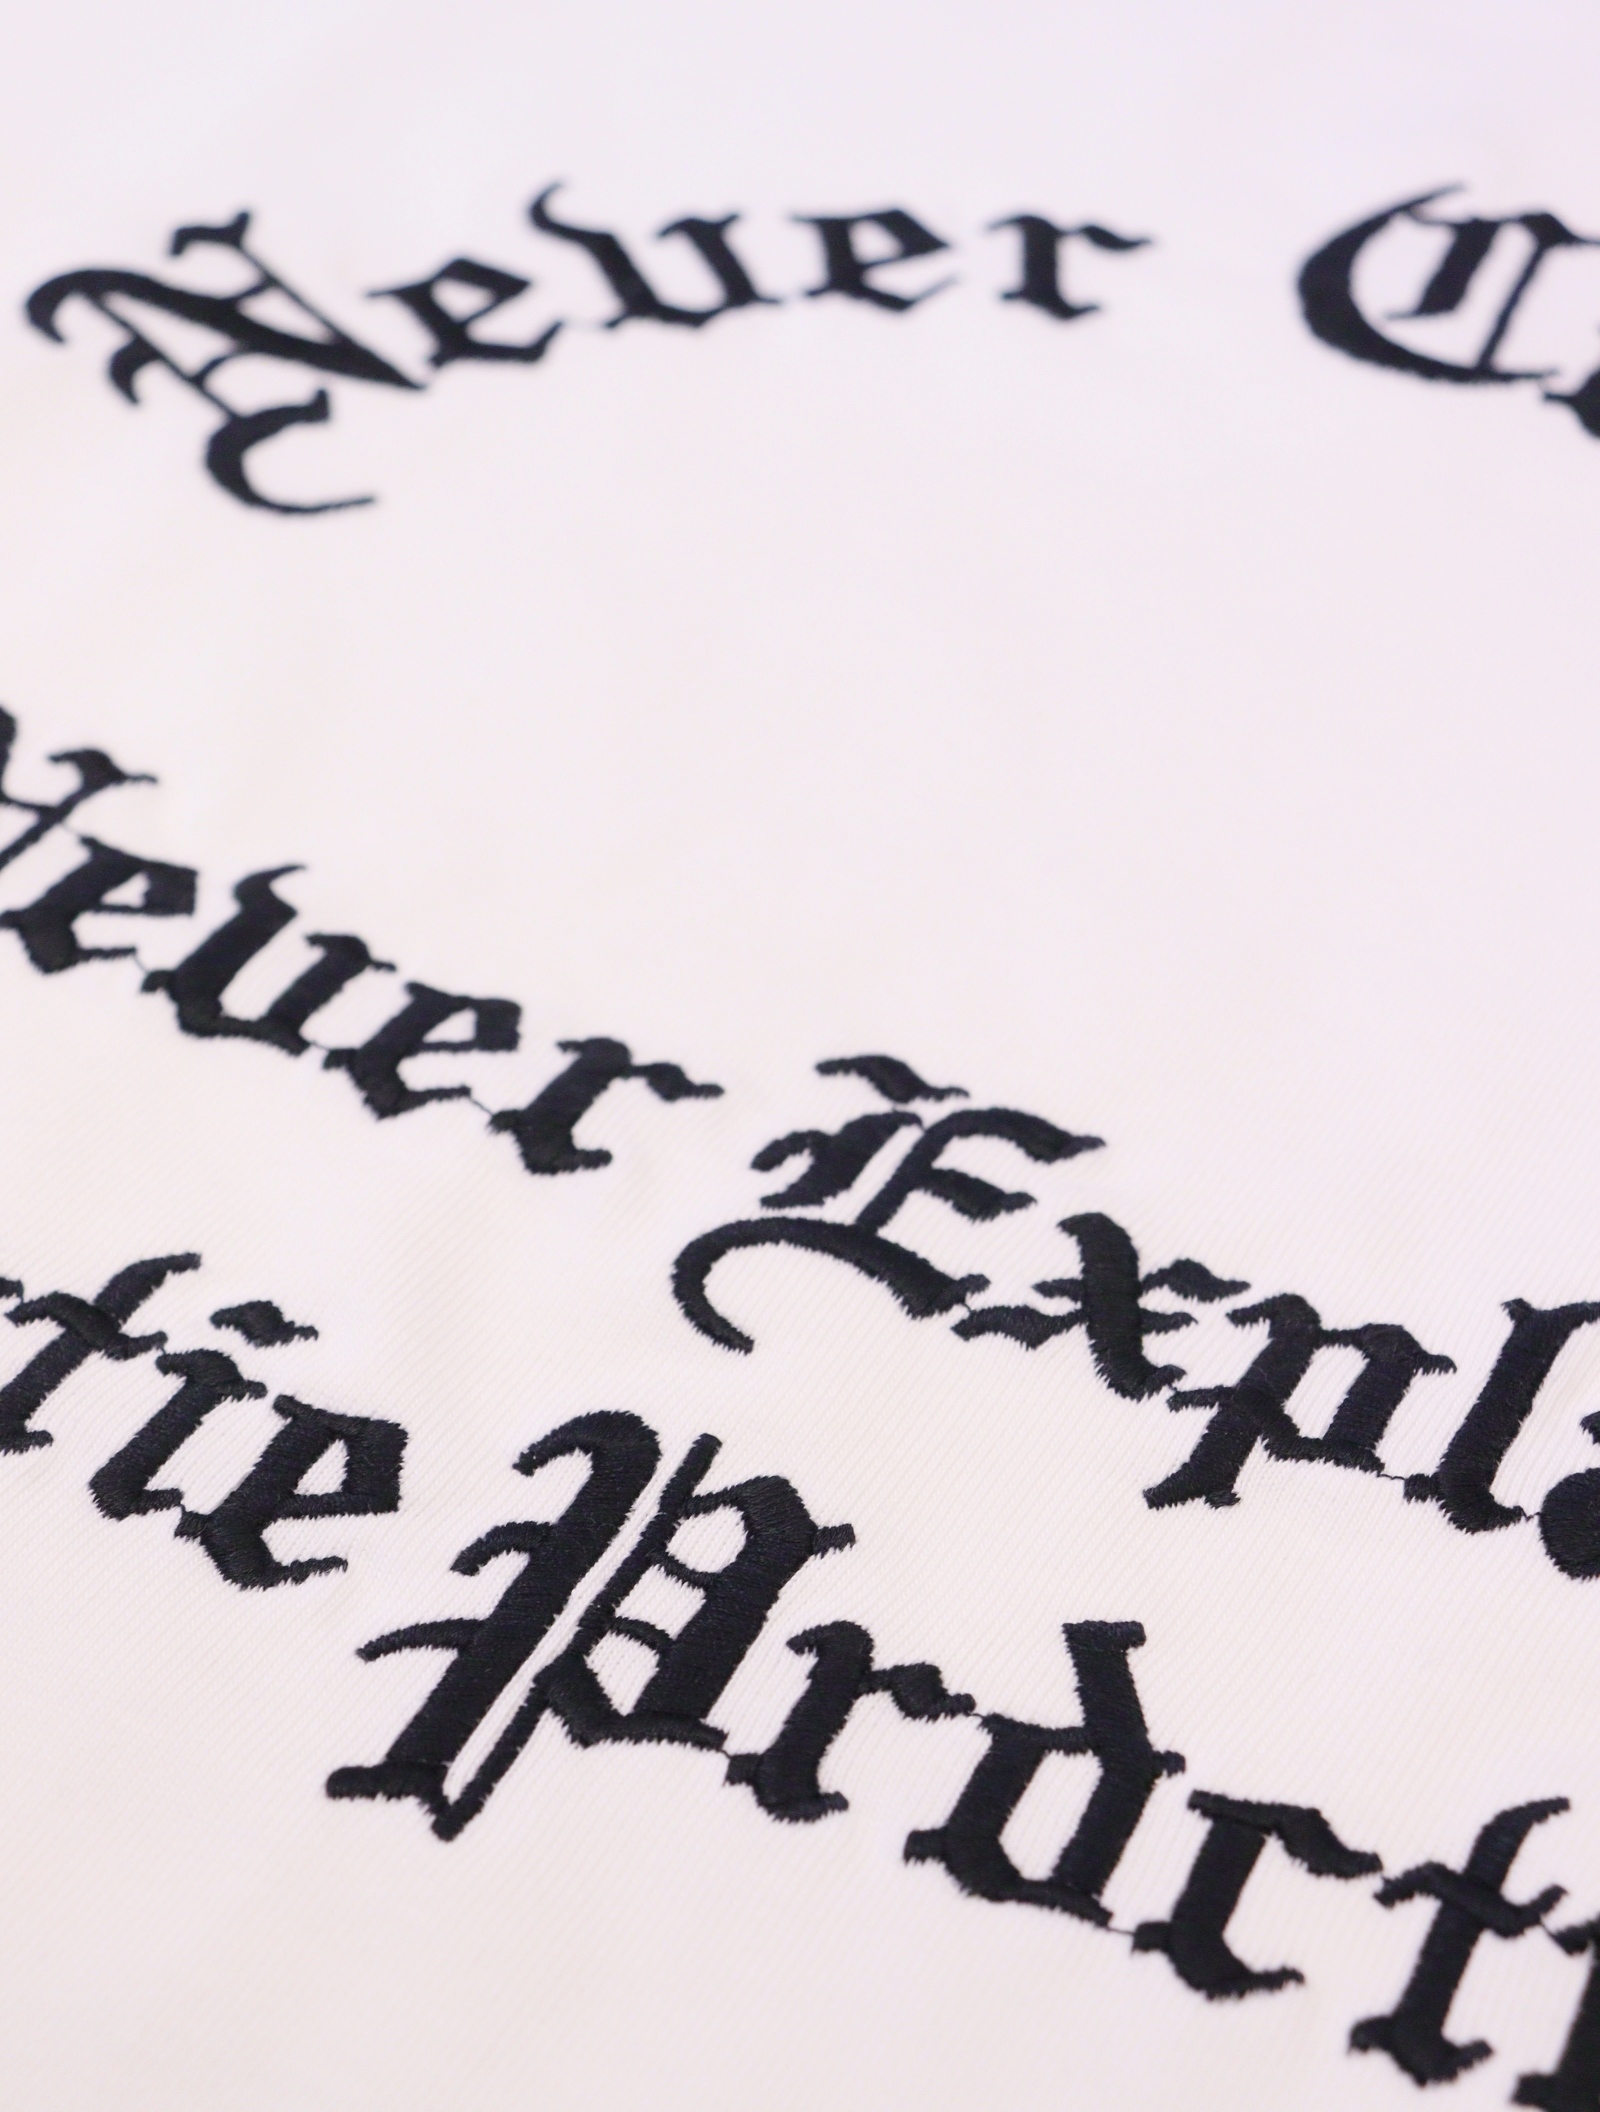 Never C
Never Expla
tie Prdct